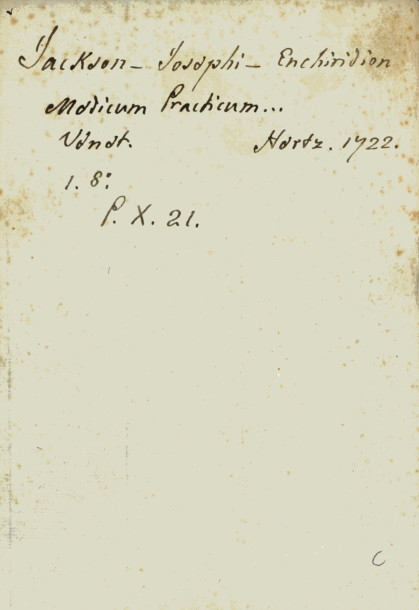 Jackson – Josephi – Enchiridion
Medicum Practicum...
Venet. Hertz. 1722.
1. 8º
P. X. 21.
C